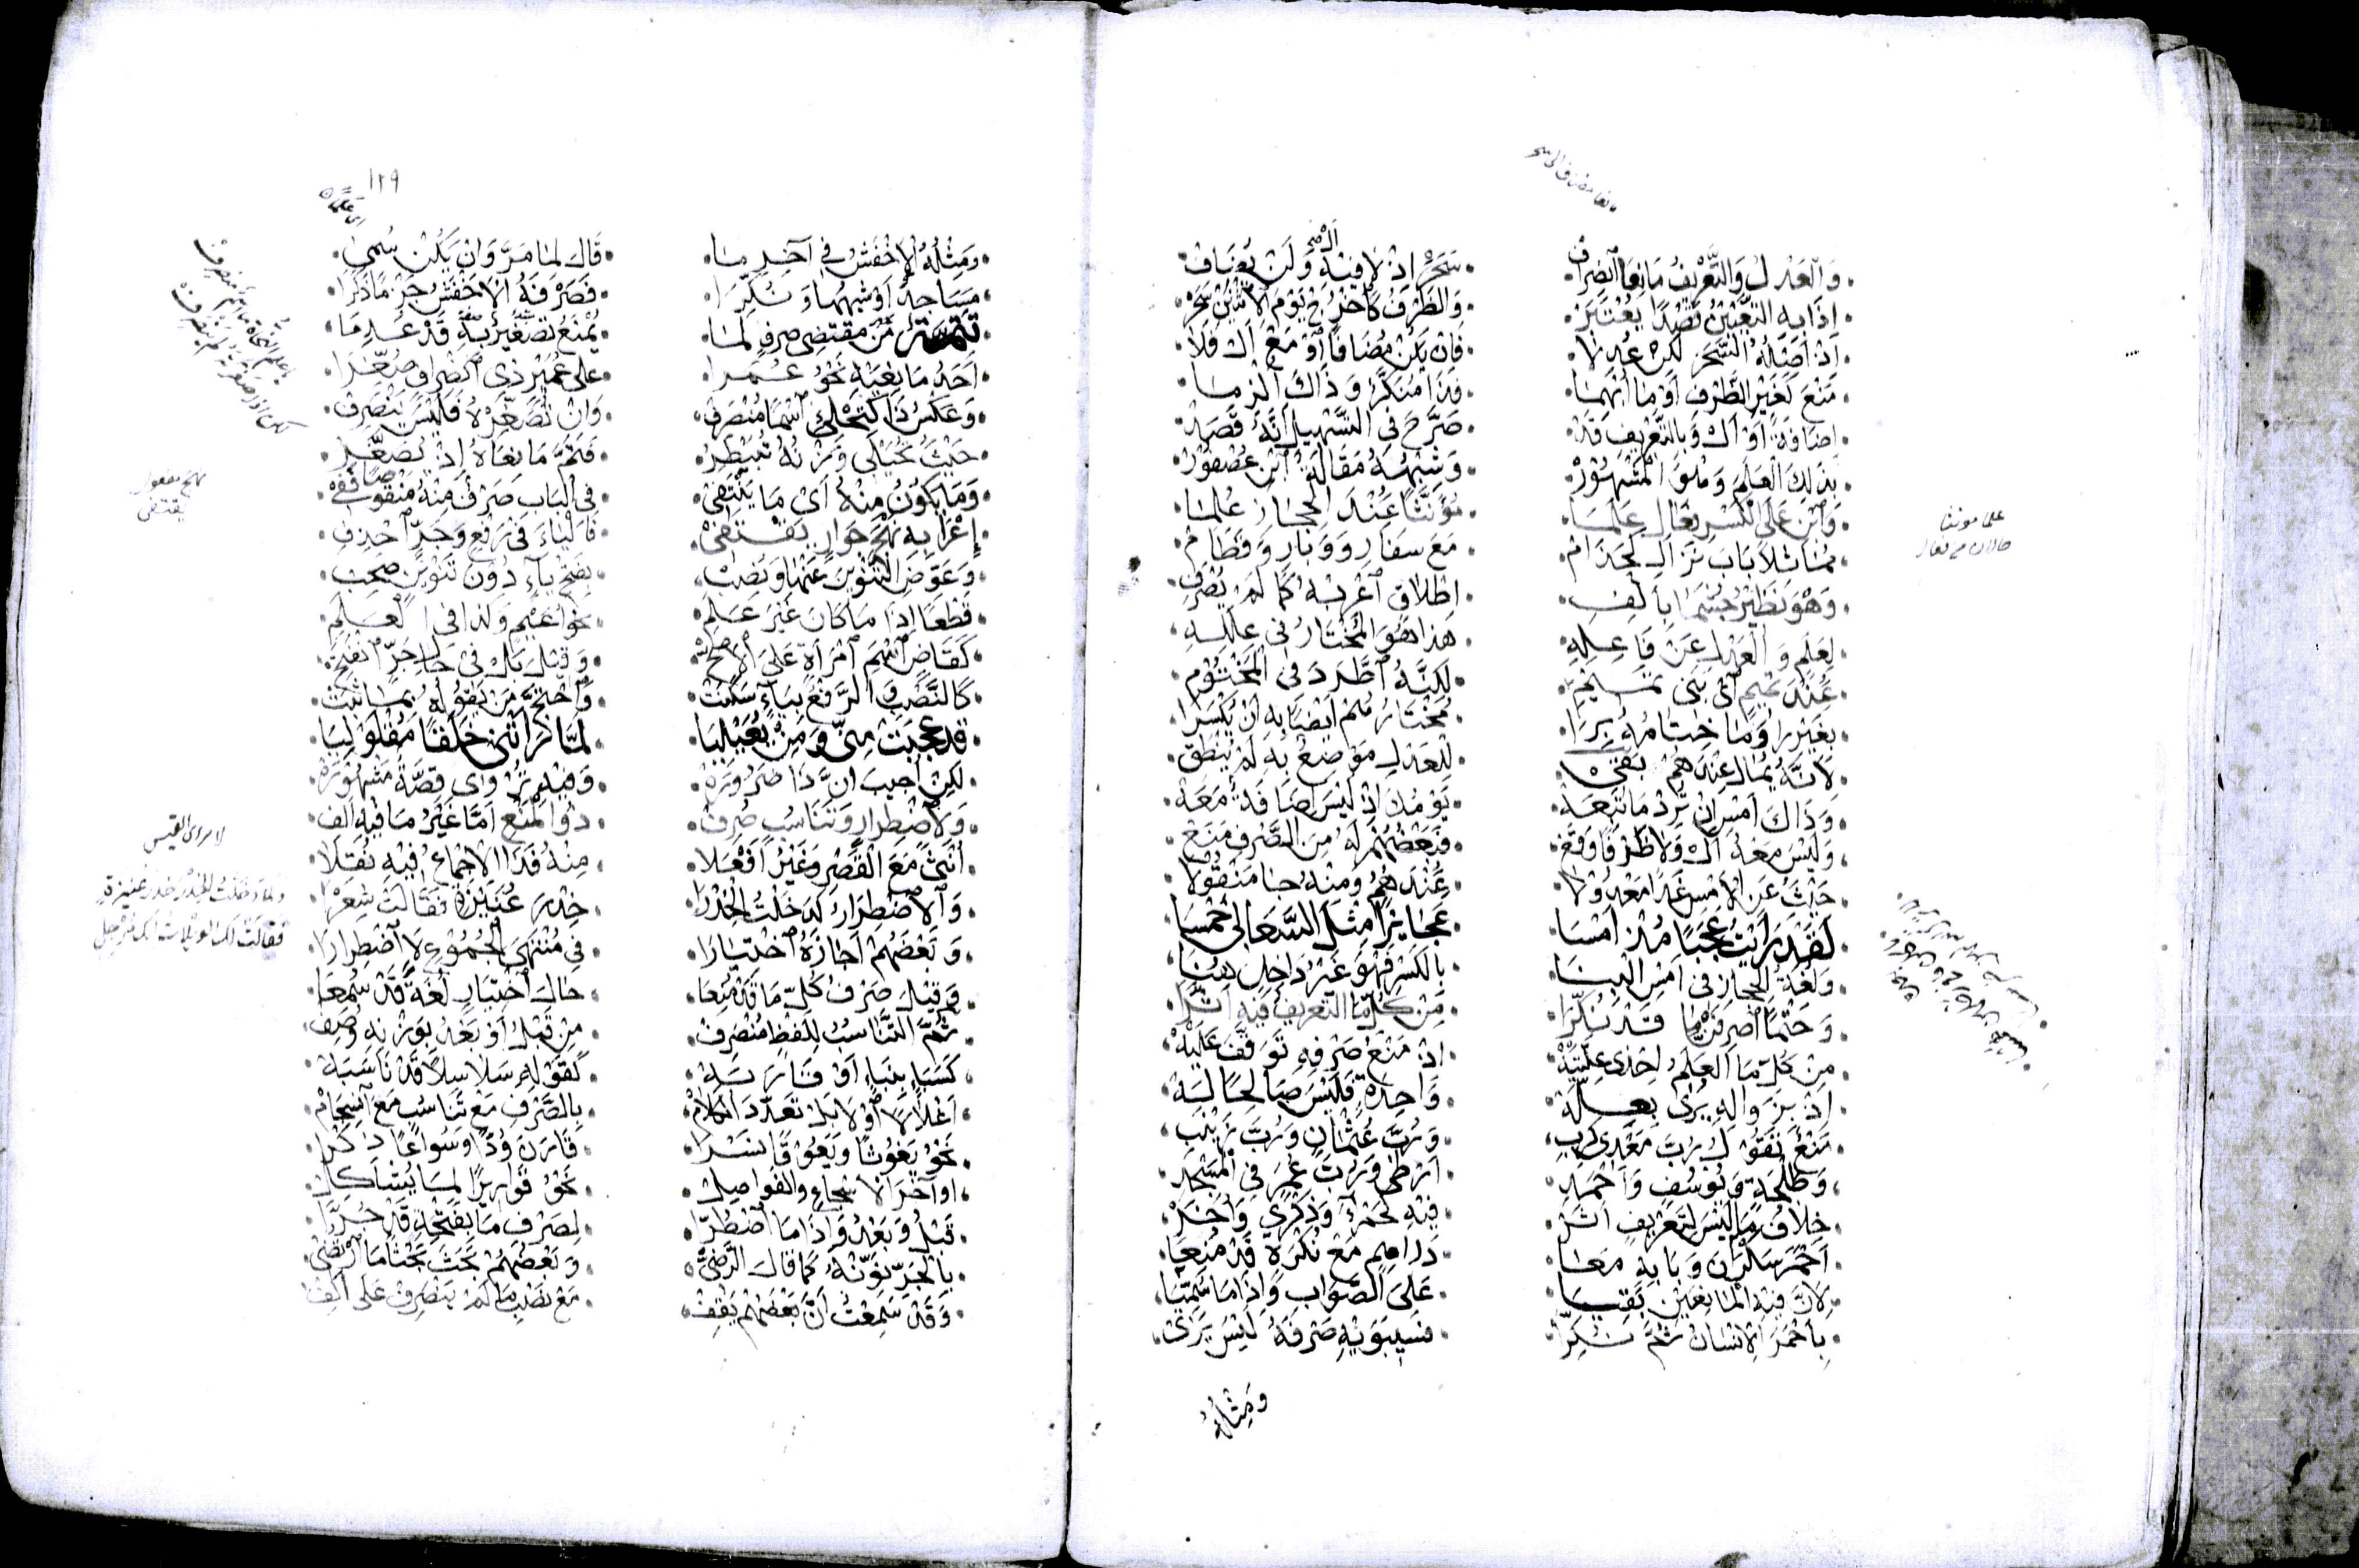 وَالعَدلُ وَالتَّعْرِيفُ مَانِعَا الصِّرَافِ
سَحَرٌ إِذْ لَا فِيهِ أَل وَلَنْ يُضَافْ
إِذَا بِهِ التَّعْيِينُ قَصْدًا يُعْتَبَرْ
وَالظَّرْفُ كَاخْرُجْ يَوْمَ الِاثْنَيْنِ سَحَرْ
إِذْ أَصْلُهُ السَّحَرُ لَكِنْ عُدِلَا
فَإِنْ يَكُنْ مُضَافًا أَوْ مَعْ أَلْ فَلَا
مَنْعَ كَغَيْرِ الظَّرْفِ أَوْ مَا أُبْهِمَا
فَذَا مُنَكَّرٌ وَذَاكَ أُلْزِمَا
إِضَافَةً أَوْ أَلْ وَبِالتَّعْرِيفِ قَدْ
صَرَّحَ فِي التَّسْهِيلِ أَنَّهُ قَصَدْ
بِذَلِكَ العَلَمَ وَهْوَ الْمَشْهُوْرْ
وَشِبْهُهُ مَقَالَةُ ابْنِ عُصْفُوْرْ
وَابْنِ عَلَى الْكَسْرِ فَعَالِ عَلَمَا
مُؤَنَّثًا عِنْدَ الحِجَازِ عُلِمَا
مُمَاثِلًا بَابَ نَزَالِ كَحَذَامْ
مَعَ سَفَارِ وَوَبَارِ وَقَطَامْ
وَهْوَ نَظِيْرُ جُشَمَا بِأَلِفِ
اِطْلَاقٍ اعْرِبْهُ كَمَا لَمْ يُصْرَفِ
لِعَلَمٍ وَالْعَدْلِ عَنْ فَاعِلِهِ
هَذَا هُوَ الْمُخْتَارُ فِي عِلَلِهِ
عِنْدَ تَمِيمٍ أَيْ بَنِي تَمِيمِ
لَكِنَّهُ اطَّرَدَ فِي الْمَخْتُوْمِ
بِغَيْرِ رًا وَمَا خِتَامُهُ بِرَا
مُخْتَارُهُمْ أَيْضًا بِهِ أَنْ يُكْسَرَا
لِأَنَّهُ يُمَالُ عِنْدَهُمْ
لِلْعَدْلِ مَوْضِعٌ بِهِ لَمْ يَنْطِقْ
وَذَاكَ أَمْسِ إِنْ تُرِدْ مَا تَبِعَهْ
يَوْمُكَ إِذْ لَيْسَ إِضَافَةٌ مَعَهْ
وَلَيْسَ مَعْهُ أَلْ وَلَا ظَرْفًا وَقَعْ
فَبَعْضُهُمْ لَهُ مِنَ الصَّرْفِ مَنَعْ
حَيْثُ عَنِ الْأَمْسِ غَدَا مَعْدُوْلَا
عِنْدَهُمُ وَمِنْهُ جَا مَنْقُوْلَا
لَقَدْ رَأَيْتُ عَجَبًا مُذْ أَمْسَا
عَجَائِزًا مِثْلَ السَّعَالِي خَمْسَا
وَلُغَةُ الحِجَازِ فِي أَمْسِ الْبِنَا
بِالْكَسْرِ فَهْوَ غَيْرُ دَاخِلٍ هُنَا
وَحَتْمًا اصْرِفَنْ مَا قَدْ نُكِّرَا
مِنْ كُلِّ مَا التَّعْرِيفُ فِيهِ أَثَّرَا
مِنْ كُلِّ مَا العَلَمُ إِحْدَى عِلَّتَيْهْ
إِذْ مَنْعُ صَرْفِهِ تَوَقَّفَ عَلَيْهْ
إِذْ بِزَوَالِهِ يُرَى بِعِلَّهْ
وَاحِدَةٍ فَلَيْسَ صَالِحًا لَهْ
مَنْعٌ تَقُوْلُ رُبَّ مَعْدِي كَرِبِ
وَرُبَّ عُثْمَانٍ وَرُبَّ زَيْنَبِ
وَطَلْحَةٍ وَيُوسُفٍ وَأَحْمَدِ
أَرْطًى وَرُبَّ عُمَرٍ فِي الْمَسْجِدِ
خِلَافُ مَا لَيْسَ لِتَعْرِيفٍ أَثَرْ
فِيهِ كَحَمْرَاءَ وَذِكْرَى وَأُخَرْ
أَحْمَرَ سَكْرَانَ وَبَابِهِ مَعَا
دَرَاهِمٍ مَعْ نُكْرَةٍ قَدْ مُنِعَا
لِأَنَّ فِيهِ الْمَانِعَيْنِ بَقِيَا
عَلَى الصَّوَابِ وَإِذَا مَا سُمِّيَا
بِأَحْمَرَ الْإِنْسَانُ ثُمَّ نُكِّرَا
فَسِيبَوَيْهِ صَرْفَهُ لَيْسَ يَرَى
وَمِثْلُهُ
علما مونثا
حالان من فعال
١٢٩
أي علمان
وَمِثْلُهُ الْأَخْفَشُ فِي آخِرِ مَا
قَالَ لِمَا مَرَّ وَإِنْ يَكُنْ سُمِي
مَسَاجِدٌ أَوْ شِبْهُهَا وَنُكِّرَا
فَصَرْفَهُ الْأَخْفَشُ جَزْمًا ذَكَرَا
تَتِمَّةٌ مِنْ مُقْتَضَى صَرْفٍ لِمَا
يُمْنَعُ تَصْغِيْرٌ بِهِ قَدْ عُدِمَا
أَحَدُ مَانِعَيْهِ نَحْوُ عُمَرَا
عَلَى عُمَيْرٍ ذِي انْصِرَافٍ صُغِّرَا
وَعَكْسُ ذَا كَتِحْلِئٍ اسْمًا مُنْصَرِفْ
وَإِنْ تُصَغِّرْهُ فَلَيْسَ يَنْصَرِفْ
حَيْثُ تُحَيْلِي وَزْنُهُ تُبَيْطِرُ
فَتَمَّ مَانِعَاهُ إِذْ يُصَغَّرُ
وَمَا يَكُوْنُ مِنْهُ أَيْ مَا يَنْتَفِيْ
فِي الْبَابِ صَرْفٌ مِنْهُ مَنْقُوْصًا فَفِيْ
إِعْرَابِهِ نَهْجَ جَوَارٍ يَقْتَفِيْ
فَالْيَاءَ فِي رَفْعٍ وَجَرٍّ احْذِفِ
وَعَوِّضِ التَّنْوِينَ عَنْهَا وَنَصَبْ
بِفَتْحِ يَاءٍ دُوْنَ تَنْوِيْنٍ صَحِبْ
قَطْعًا إِذَا مَا كَانَ غَيْرَ عَلَمِ
نَحْوُ أُعَيْمٍ وَكَذَا فِي الْعَلَمِ
كَقَاضٍ اسْمَ امْرَأَةٍ عَلَى الْأَصَحّْ
وَقِيْلَ بَلْ فِيْ حَالِ جَرٍّ انْفَتَحْ
كَالنَّصْبِ وَالرَّفْعُ بِيَاءٍ سَكَنَتْ
وَاحْتَجَّ مَنْ يَقُوْلُهُ بِمَا ثَبَتْ
قَدْ عَجِبَتْ مِنِّي وَمِنْ يُعَيْلِيَا
لَمَّا رَأَتْنِي خَلَقًا مُقْلَوْلِيَا
لَكِنْ أُجِيبَ أَنَّ ذَا ضَرُوْرَهْ
قِصَّةٌ مَشْهُوْرَهْ
وَلِاضْطِرَارٍ وَتَنَاسُبٍ صُرِفْ
ذُو الْمَنْعِ أَمَّا غَيْرُ مَا فِيهِ أَلِفْ
أُنْثَى مَعَ الْقَصْرِ وَغَيْرُ أَفْعَلَا
مِنْهُ فَذَا الْإِجْمَاعُ فِيْهِ نُقِلَا
وَالِاضْطِرَارُ كَدَخَلْتُ الْخِدْرَا
خِدْرَ عُنَيْزَةٍ فَقَالَتْ شِعْرَا
وَبَعْضُهُمْ أَجَازَهُ اخْتِيَارَا
فِي مُنْتَهَى الْجُمُوْعِ لَا اضْطِرَارَا
وَقِيْلَ صَرْفُ كُلِّ مَا قَدْ مُنِعَا
حَالَ اخْتِيَارٍ لُغَةٌ قَدْ سُمِعَا
ثُمَّ التَّنَاسُبُ لِلَفْظٍ مُنْصَرِفْ
مِنْ قَبْلُ أَوْ بَعْدُ بِوَزْنِهِ وُصِفْ
كَسَبَإٍ بِنَبَإٍ أَوْ قَارَبَهْ
كَقَوْلِهِ سَلَاسِلًا قَدْ نَاسَبَهْ
أَغْلَالًا أَوْ لَا بَلْ تَعَدَّدَ الْكَلَامْ
بِالصَّرْفِ مَعْ تَنَاسُبٍ مَعَ انْسِجَامْ
نَحْوُ يَغُوْثًا وَيَعُوْقًا نَسْرَا
قَارَنَ وُدًّا وَسُوَاعًا ذِكْرَا
أَوْ آخِرَ الْأَسْجَاعِ وَالْفَوَاصِلِ
نَحْوُ قَوَارِيرًا لِمَا يُشَاكِلُ
قَبْلُ وَبَعْدُ وَإِذَا مَا اضْطُرَّا
لِصَرْفِ مَا بِفَتْحَةٍ قَدْ جُرَّا
بِالْجَرِّ نَوِّنْهُ كَمَا قَالَ الرَّضِيّْ
وَبَعْضُهُمْ بَحَثَ بَحْثًا مَا ارْتُضِيْ
وَقَدْ سَمِعْتُ أَنَّ بَعْضَهُمْ يَقِفْ
مَعْ نَصْبِ مَا لَمْ يَنْصَرِفْ عَلَى أَلِفْ
نهج مفعول
يقتفى
لامرئ القيس
وَلَمَّا دَخَلْتُ الْخِدْرَ خِدْرَ عُنَيْزَةٍ
فَقَالَتْ لَكَ الْوَيْلَاتُ إِنَّكَ مُرْجِلِي